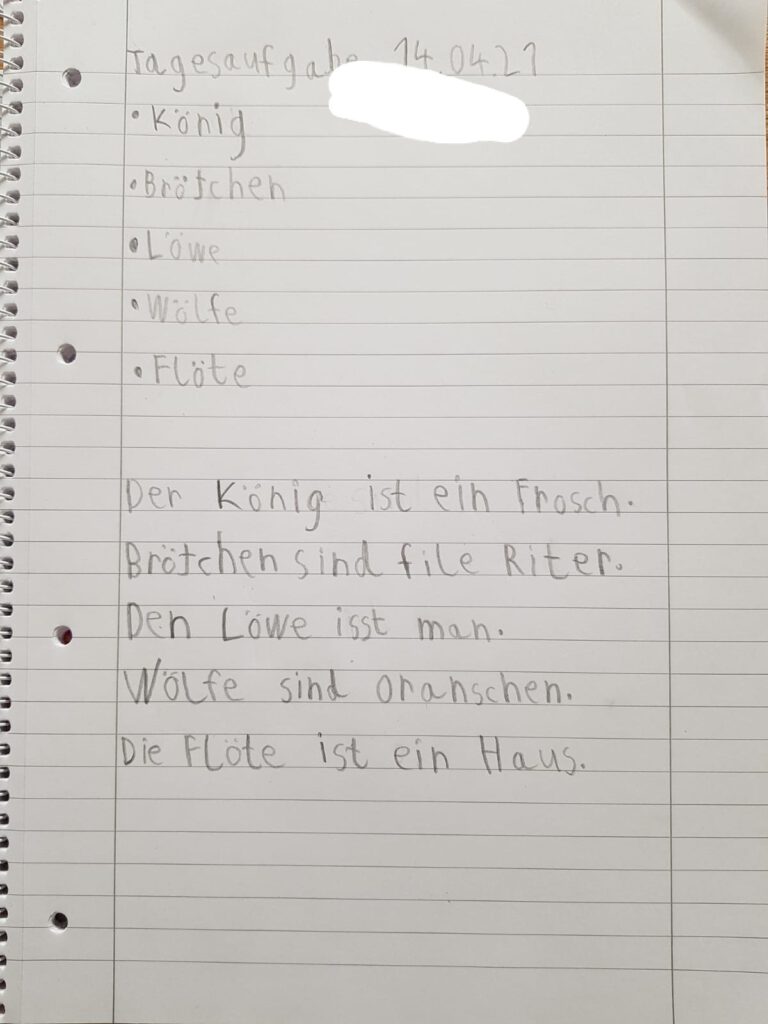 Tagesaufgabe 14.04.21
• König
• Brötchen
• Löwe
• Wölfe
• Flöte
Der König ist ein Frosch.
Brötchen sind file Riter.
Den Löwe isst man.
Wölfe sind oranschen.
Die Flöte ist ein Haus.